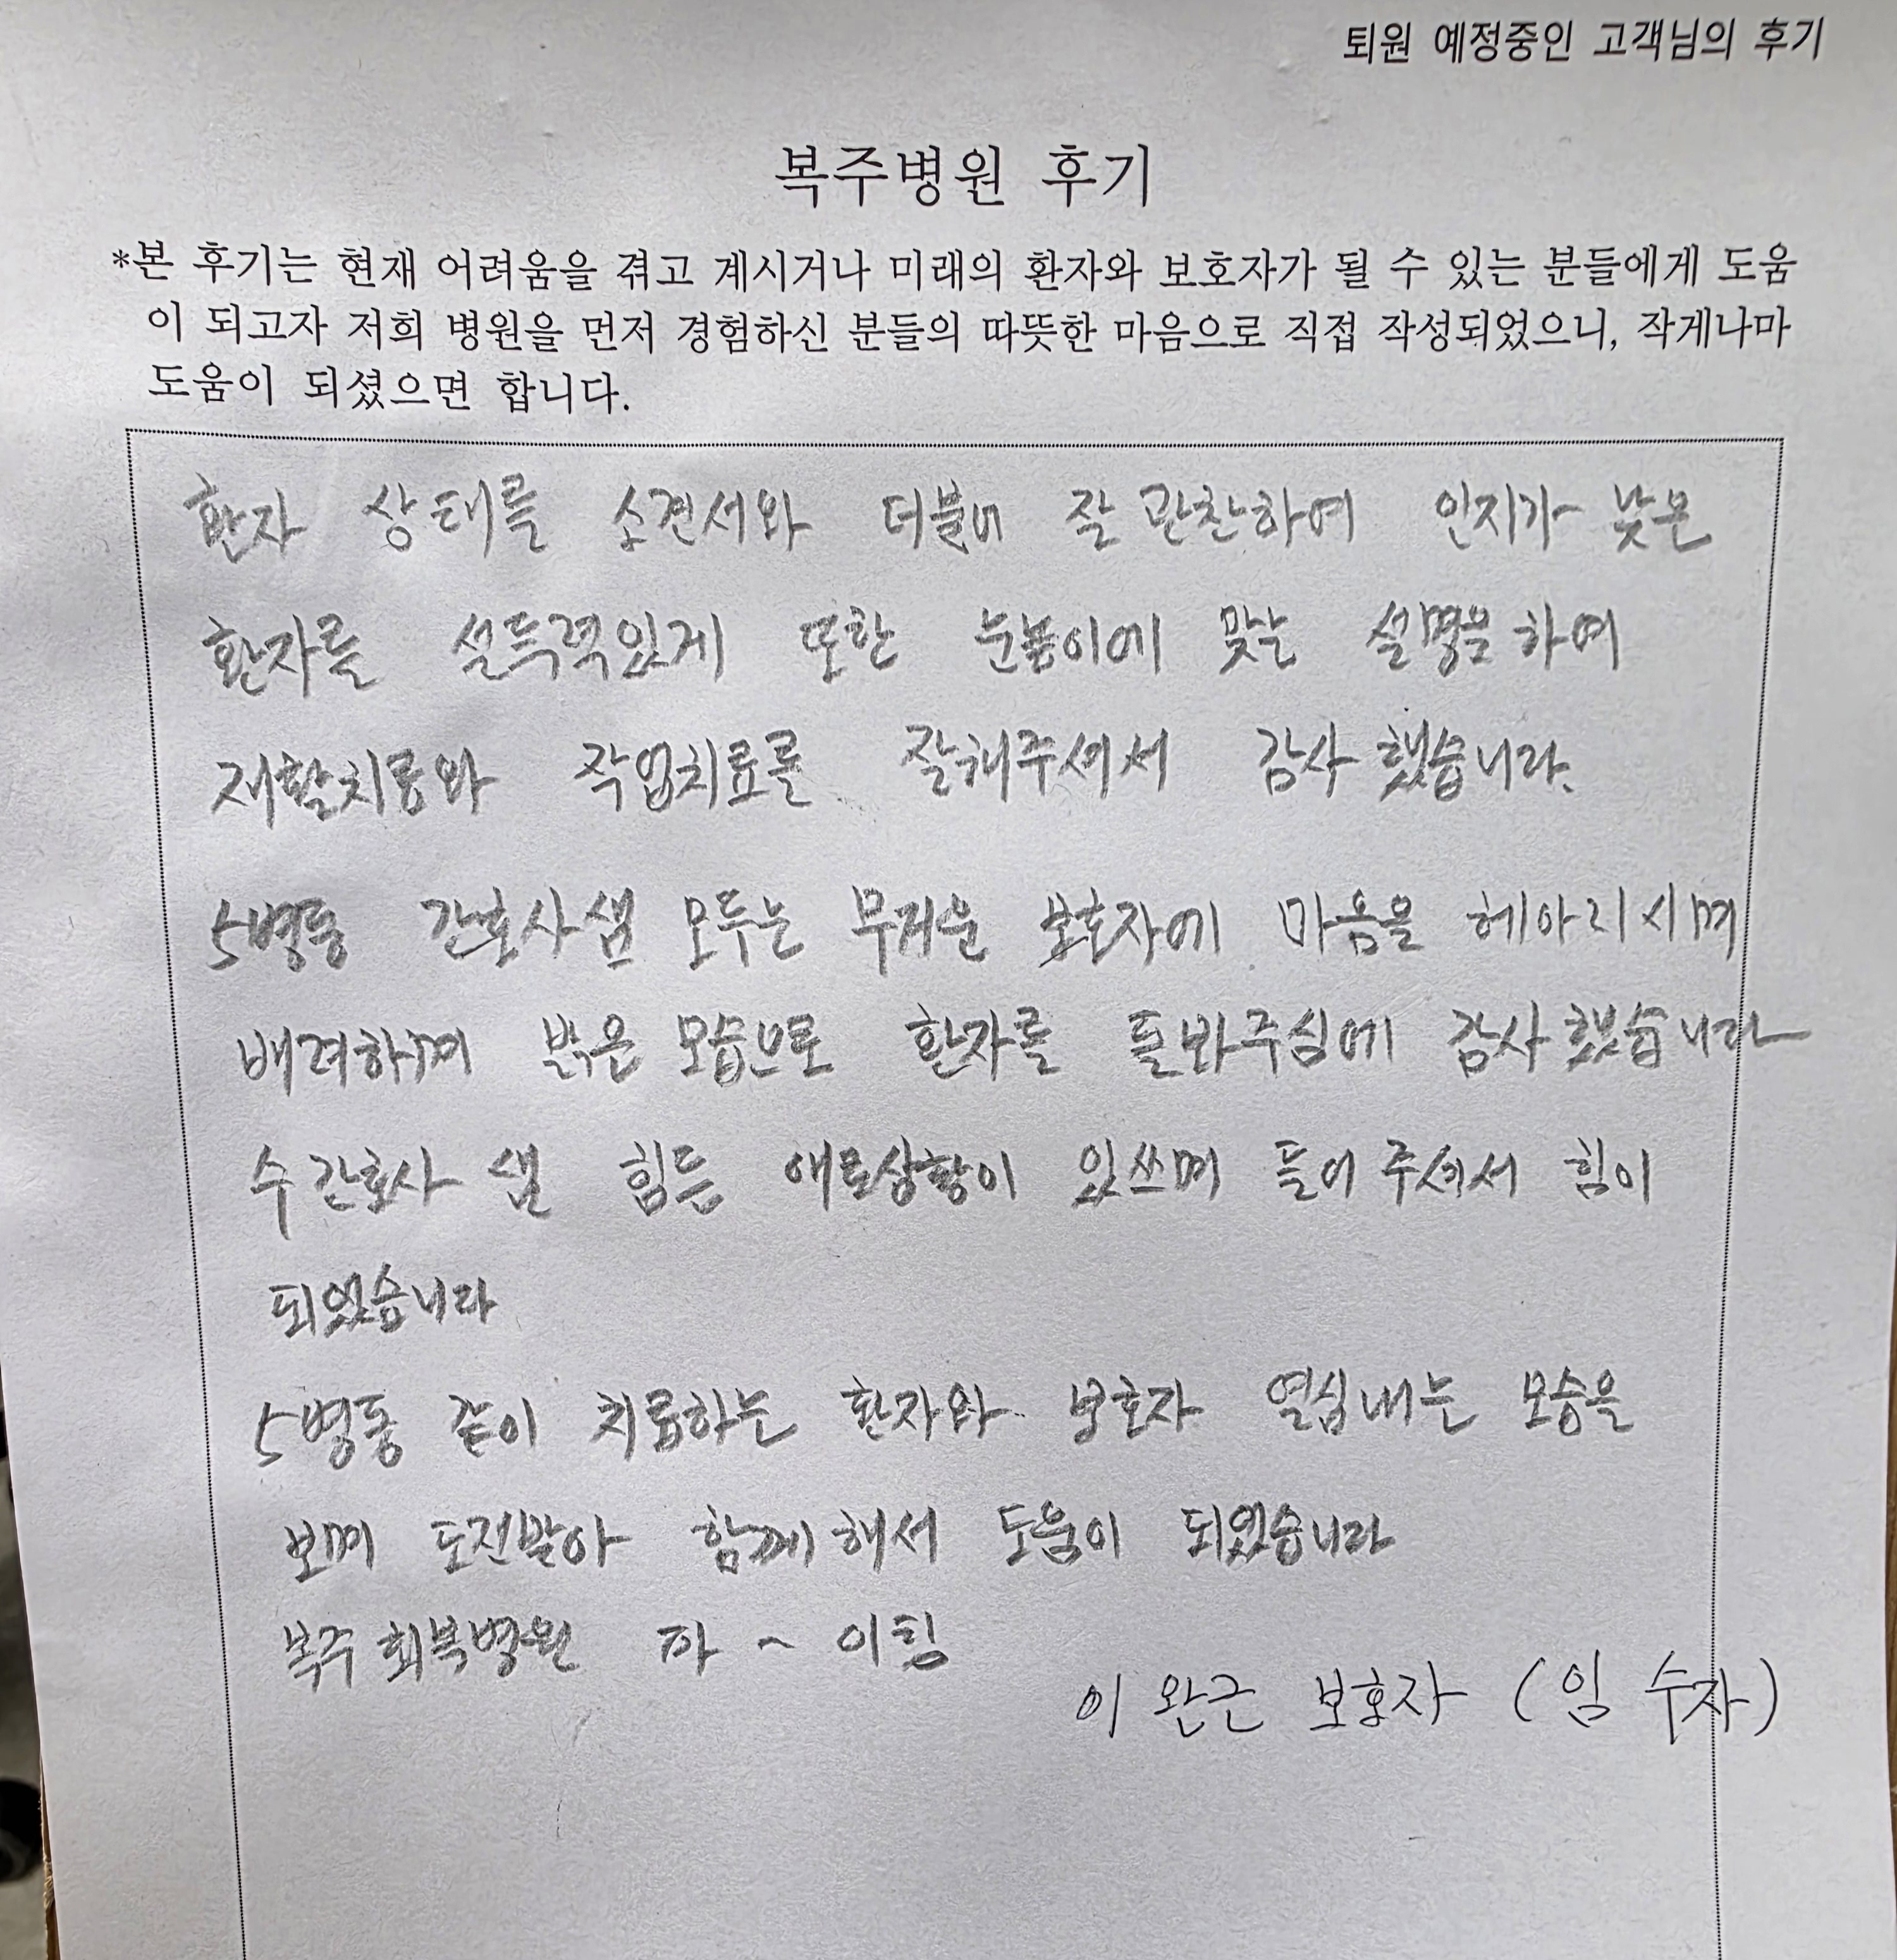 퇴원 예정중인 고객님의 후기
복주병원 후기
*본 후기는 현재 어려움을 겪고 계시거나 미래의 환자와 보호자가 될 수 있는 분들에게 도움
이 되고자 저희 병원을 먼저 경험하신 분들의 따뜻한 마음으로 직접 작성되었으니, 작게나마
도움이 되셨으면 합니다.
환자 상태를 소견서와 더불어 잘 관찰하여 인지가 낮은
환자를 설득력있게 또한 눈높이에 맞는 설명을 하여
재활치료와 작업치료를 잘해주셔서 감사했습니다.
5병동 간호사샘 모두는 무거운 보호자에 마음을 헤아리시며
배려하며 밝은 모습으로 환자를 돌봐주심에 감사했습니다
수간호사 샘 힘든 애로상황이 있쓰며 들어주셔서 힘이
되었습니다
5병동 같이 치료하는 환자와 보호자 열심내는 모습을
보며 도전받아 함께해서 도움이 되었습니다
복주회복병원 파~이팅
이완근 보호자 (임수자)